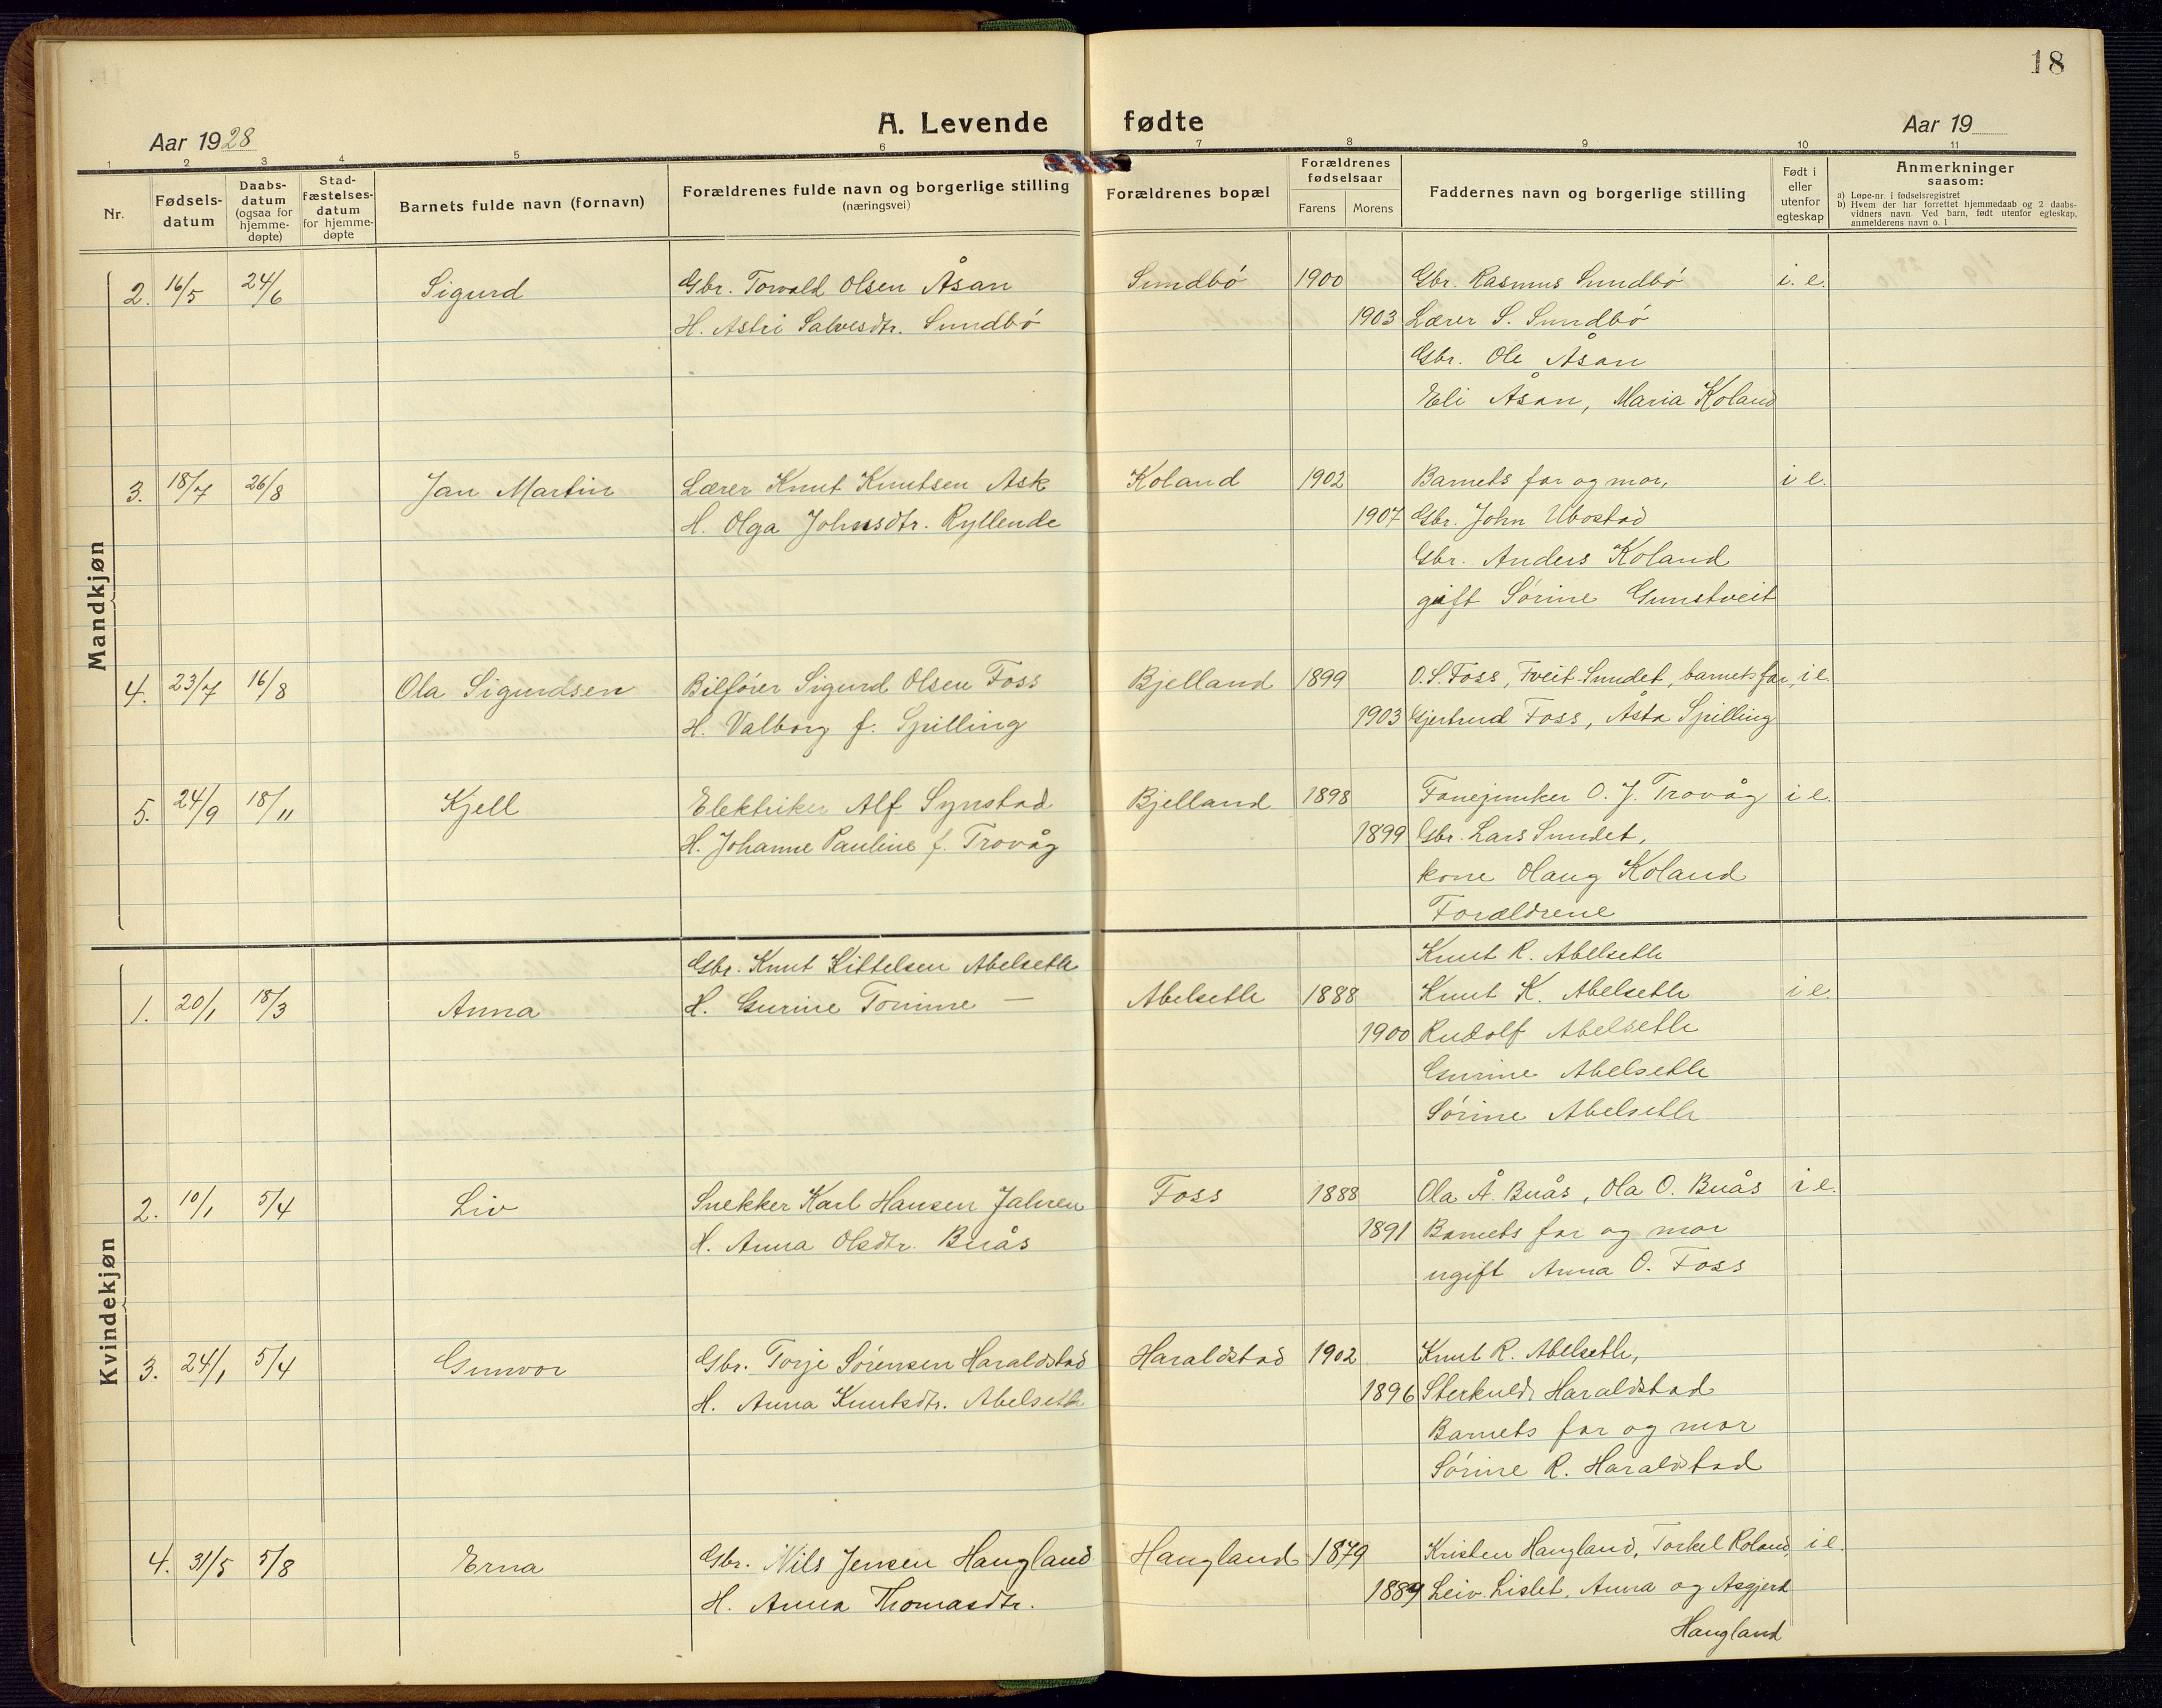 18
Aar 1928
A. Levende fødte
Aar 19
1 2 3 4 5 6 7 8 9 10 11
Nr.
Fødsels-
datum
Daabs-
datum
(ogsaa for
hjemme-
døpte)
Stad-
fæstelses-
datum
for hjemme-
døpte
Barnets fulde navn (fornavn)
Forældrenes fulde navn og borgerlige stilling
(næringsvei)
Forældrenes bopæl
Forældrenes
fødselsaar
Farens Morens
Faddernes navn og borgerlige stilling
Født i
eller
utenfor
egteskap
Anmerkninger
saasom:
a) Løpe-nr. i fødselsregistret
b) Hvem der har forrettet hjemmedaab og 2 daabs-
vidners navn. Ved barn, født utenfor egteskap,
anmelderens navn o. l
Mandkjøn
2. 16/5 24/6 Sigurd Gbr. Torvald Olsen Åsan Sundbö 1900 Gbr. Rasmus Sundbö i. e.
H. Astri Salvesdtr. Sundbö 1903 Lærer S. Sundbö
Gbr. Ole Åsan
Eli Åsan, Maria Koland
3. 18/7 26/8 Jan Martin Lærer Knut Knutsen Ask Koland 1902 Barnets far og mor, i e.
H. Olga Johnsdtr. Ryllende 1907 Gbr. John Ubostad
Gbr. Anders Koland
gift Sörine Gunstveit
4. 23/7 16/8 Ola Sigurdsen Bilförer Sigurd Olsen Foss Bjelland 1899 O. S. Foss, Tveit-Sundet, barnets far, i e.
H. Valborg f. Spilling 1903 Gjertrud Foss, Åsta Spilling
5. 24/9 18/11 Kjell Elektriker Alf Synstad Bjelland 1898 Fanejunker O. J. Trovåg i e.
H. Johanne Pauline f. Trovåg 1899 Gbr. Lars Sundet,
kone Olaug Koland
Forældrene
Kvindekjøn
Gbr. Knut Kittelsen Abelseth Knut R. Abelseth
1. 20/1 18/3 Anna H. Gurine Tomine — Abelseth 1888 Knut K. Abelseth i e.
1900 Rudolf Abelseth
Gurine Abelseth
Sörine Abelseth
2. 10/1 5/4 Liv Snekker Karl Hansen Jahren Foss 1888 Ola Å. Buås, Ola O. Buås i e.
H. Anna Olsdtr. Buås 1891 Barnets far og mor
ugift Anna O. Foss
3. 24/1 5/4 Gunvor Gbr. Torje Sörensen Haraldstad Haraldstad 1902 Knut R. Abelseth,
H. Anna Knutsdtr. Abelseth 1896 Sterkuld Haraldstad
Barnets far og mor
Sörine R. Haraldstad
4. 31/5 5/8 Erna Gbr. Nils Jensen Haugland Haugland 1879 Kristen Haugland, Torkel Roland, i e.
H. Anna Thomasdtr. 1889 Leiv Lislet, Anna og Asgjerd
Haugland